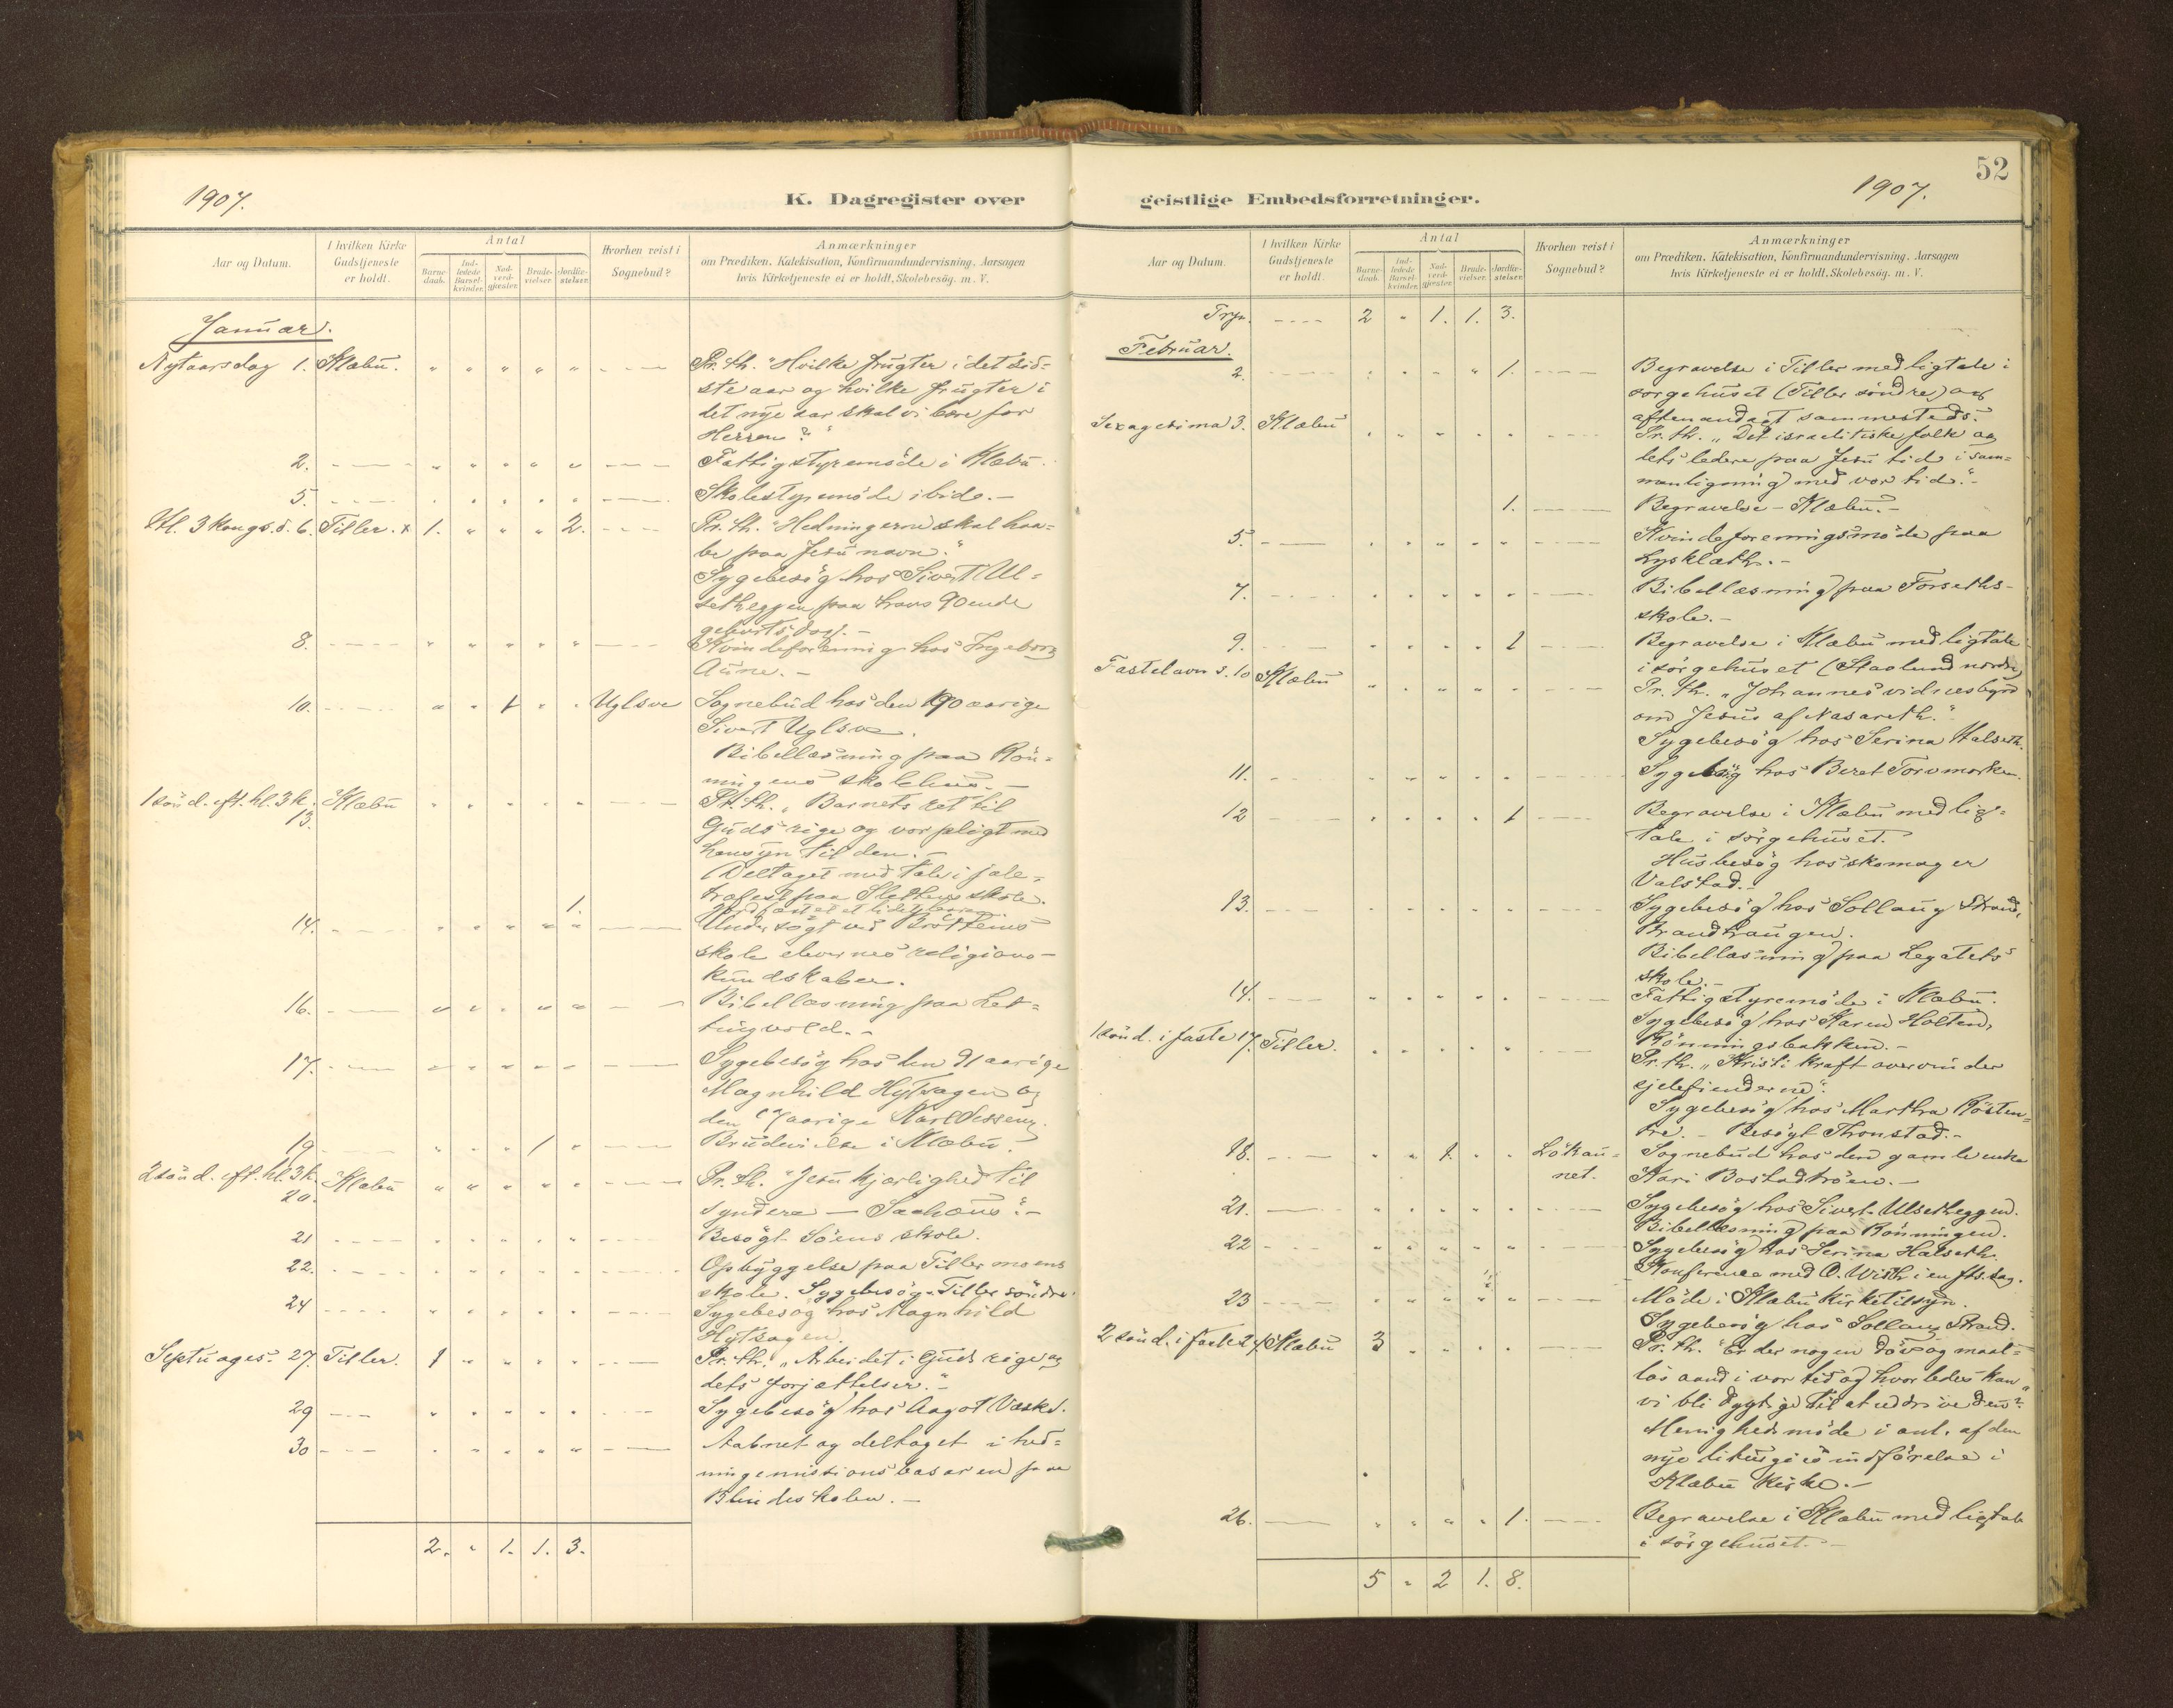 1907.
K. Dagregister over
Aar og Datum.
I hvilken Kirke Gudstjeneste er holdt.
Antal
Barnedaab.
Indledede Barselkvinder.
Nadverdgjæster.
Brudevielser.
Jordfæstelser.
Hvorhen reist i Sognebud?
Anmærkninger
om Prædiken, Katekisation, Konfirmandundervisning, Aarsagen
hvis Kirketjeneste ei er holdt, Skolebesøg. m. V.
Januar.
Nytaarsdag 1. Klæbu. " " " " " Pr. th. "Hvilke frugter i det sid-
ste aar og hvilke frugter i
det nye aar skal vi bære for
Herren?"
2. " " " " " Fattigstyremöde i Klæbu.
5. " " " " " Skolestyremöde ibid. -
Hl. 3 Kongs. d. 6. Tiller. x 1. " " " 2. Pr. th. "Hedningerne skal haa-
be paa Jesu navn."
Sygebesög hos Sivert Ul-
setheggen paa hans 90ende
geburtsdag. -
8. " " " " " Kvindeforening hos Ingeborg
Aune. -
10. " " 1 " " Uglsve Sognebud hos den 90 aarige
Sivert Uglsve.
Bibellæsning paa Rön-
ningens skolehus. -
1 sönd. eft. hl. 3 k. Klæbu " " " " " Pr. th. "Barnets ret til
13.
Guds rige og vor pligt med
hensyn til den. -
Deltaget med tale i jule-
træfest paa Slethens skole.
1.
14. " " " " " Undersögt ved Bröttems
skole elevernes religions-
kundskaber.
16. " " " " " Bibellæsning paa Let-
tingvold. -
17. " " " " " Sygebesög hos den 91 aarige
Magnhild Hytsagen og
den 17 aarige Karl
19 " " " 1 " Brudevielse i Klæbu.
2 sönd. eft. hl. 3 k. Klæbu " " " " " Pr. th. "Jesu kjærlighed til
20.
syndere - Sachæus". -
21 " " " " " Besögt Söens skole.
22. " " " " " Opbyggelse paa Tillermoens
skole. Sygebesög - Tiller söndre.
24 " " " " " Sygebesög hos Magnhild
Hytsagen.
Septuages. 27. Tiller. 1 " " " " Pr. th. "Arbeidet i Guds rige og
dets forjættelser." -
29 " " " " " Sygebesög hos Aagot
30 " " " " " Aabnet og deltaget i hed-
ningemissionsbasaren paa
Blindeskolen. -
2. " 1. 1. 3.
52
1907.
geistlige Embedsforretninger.
Aar og Datum.
I hvilken Kirke Gudstjeneste er holdt.
Antal
Barnedaab.
Indledede Barselkvinder.
Nadverdgjæster.
Brudevielser.
Jordfæstelser.
Hvorhen reist i Sognebud?
Anmærkninger
om Prædiken, Katekisation, Konfirmandundervisning, Aarsagen
hvis Kirketjeneste ei er holdt, Skolebesøg. m. V.
Trp. 2 " 1. 1. 3.
Februar.
2. " " " " 1. Begravelse i Tiller med ligtale i
sorgehuset (Tiller söndre) og
aftenandagt sammesteds.
Sexagesima 3. Klæbu " " " " " Pr. th. "Det israelitiske folk og
dets ledere paa Jesu tid i sam-
menligning med vor tid." -
1. Begravelse - Klæbu. -
5. " " " " " Kvindeforeningsmöde paa
Lysklæth. -
7. " " " " " Bibellæsning paa Forseths-
skole. -
9. " " " " 1 Begravelse i Klæbu med ligtale
i sörgehuset (Staslund nordre)
Fastelavns s. 10 Klæbu " " " " " Pr. th. "Johannes' vidnesbyrd
om Jesus af Nasareth."
Sygebesög hos Serina Halseth.
11. " " " " " Sygebesög hos Beret Torvmarken.
12 " " " " 1 Begravelse i Klæbu med lig-
tale i sörgehuset.
Husbesög hos skomager
Valstad. -
13. " " " " " Sygebesög hos Sollaug Strand,
Brandhaugen.
Bibellæsning paa Legatets
skole. -
14. " " " " " Fattigstyremöde i Klæbu.
Sygebesög hos Karen Holten,
Rönningsbakken. -
1 sönd. i faste 17. Tiller. " " " " " Pr. th. "Kristi kraft overvinder
sjelefienderne".
Sygebesög hos Martha Rösten-
tre. - Besögt Thonstad. -
18. " " 1. " " Lökau-
net. Sognebud hos den gamle enke
Kari Bostadtröen. -
21. " " " " " Sygebesög hos Sivert Ulsetheggen.
Bibellæsning paa Rönningen.
22 " " " " " Sygebesög hos Serina Halseth.
Konferance med O. Wisth i en
23 " " " " " Möde i Klæbu kirketilsyn.
Sygebesög hos Sollaug Strand.
2 sönd. i faste 24 Klæbu 3 " " " " Pr. th. "Er der nogen döv og maal-
lös aand i vor tid og hvorledes kan
vi bli dygtige til at uddrive den?"
Menighedsmöde i anl. af den
nye liturgies indförelse i
Klæbu kirke. -
26. " " " " 1. Begravelse i Klæbu med ligtale
i sörgehuset. -
5 " 2 1. 8.